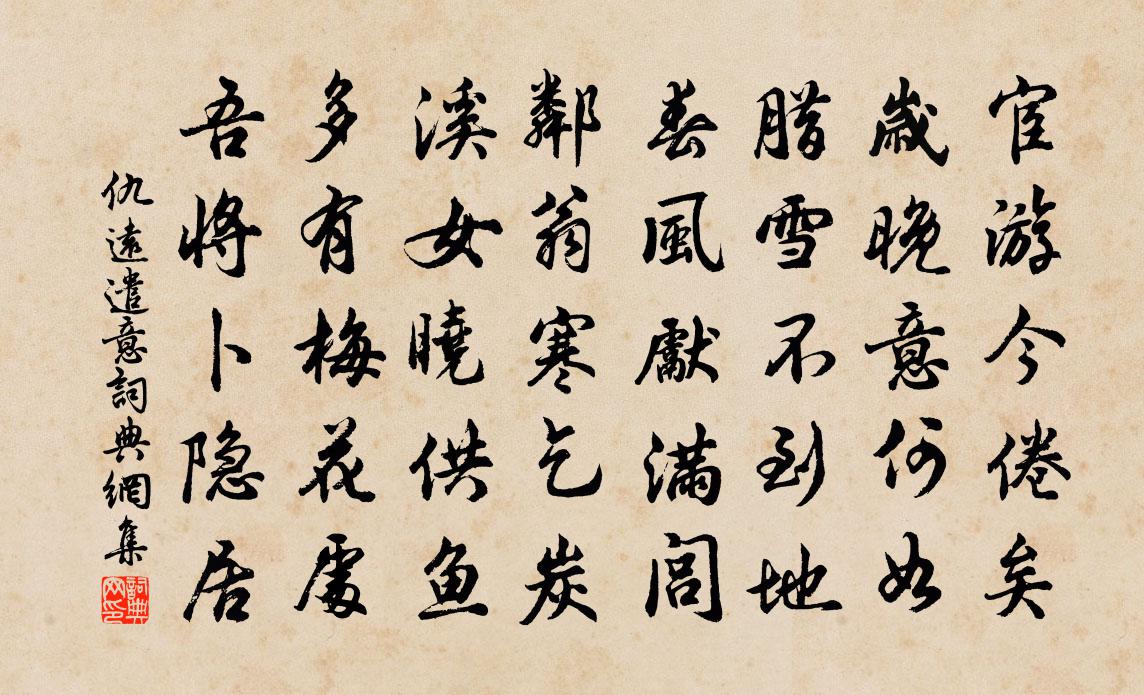 宦游今倦矣
歲晚意何如
腊雪不到地
春風獻滿閭
鄰翁寒乞炭
溪女曉供鱼
多有梅花處
吾將卜隐居
仇遠遣意詞典網集
詞典网印